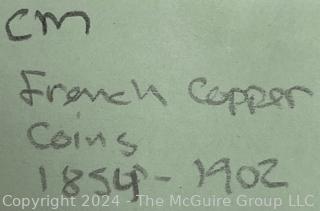 CM
French Copper
Coins
1854-1902
Copyright 2024 - The McGuire Group LLC